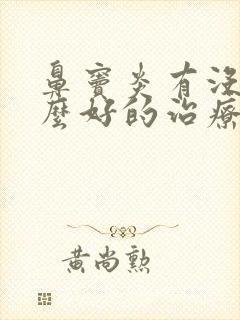 鼻竇炎有沒
麼好的治療
黃尚勲